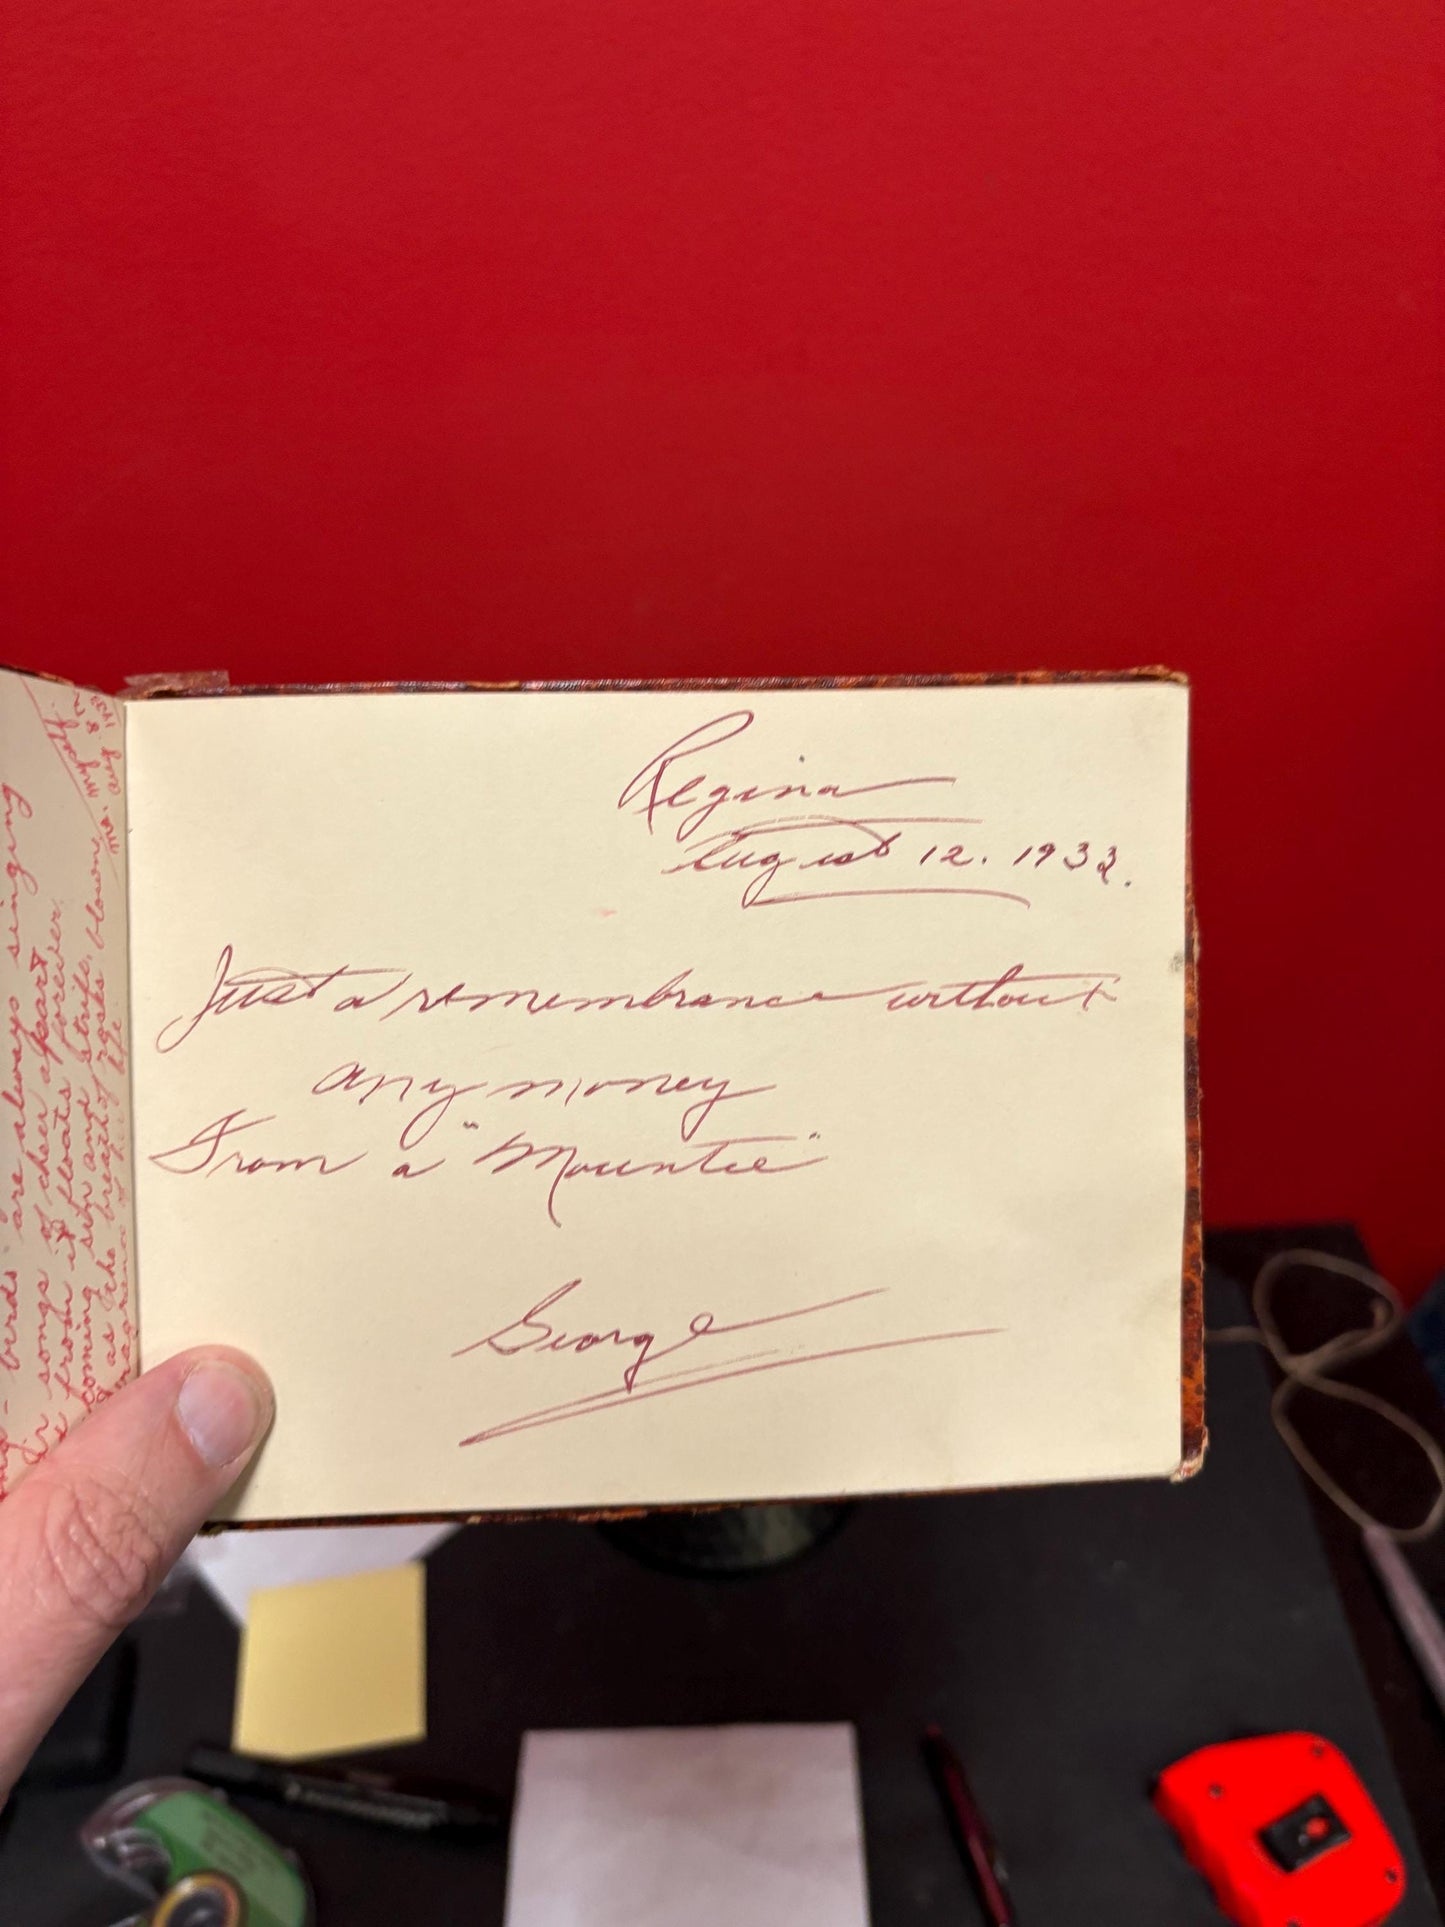 Regina
August 12. 1933.
Just a remembrance without
any money
From a "Mountie"
George
birds are always singing
songs of cheer apart
from it floats forever
coming sin and strife,
as the breath of roses blown
Mrs.